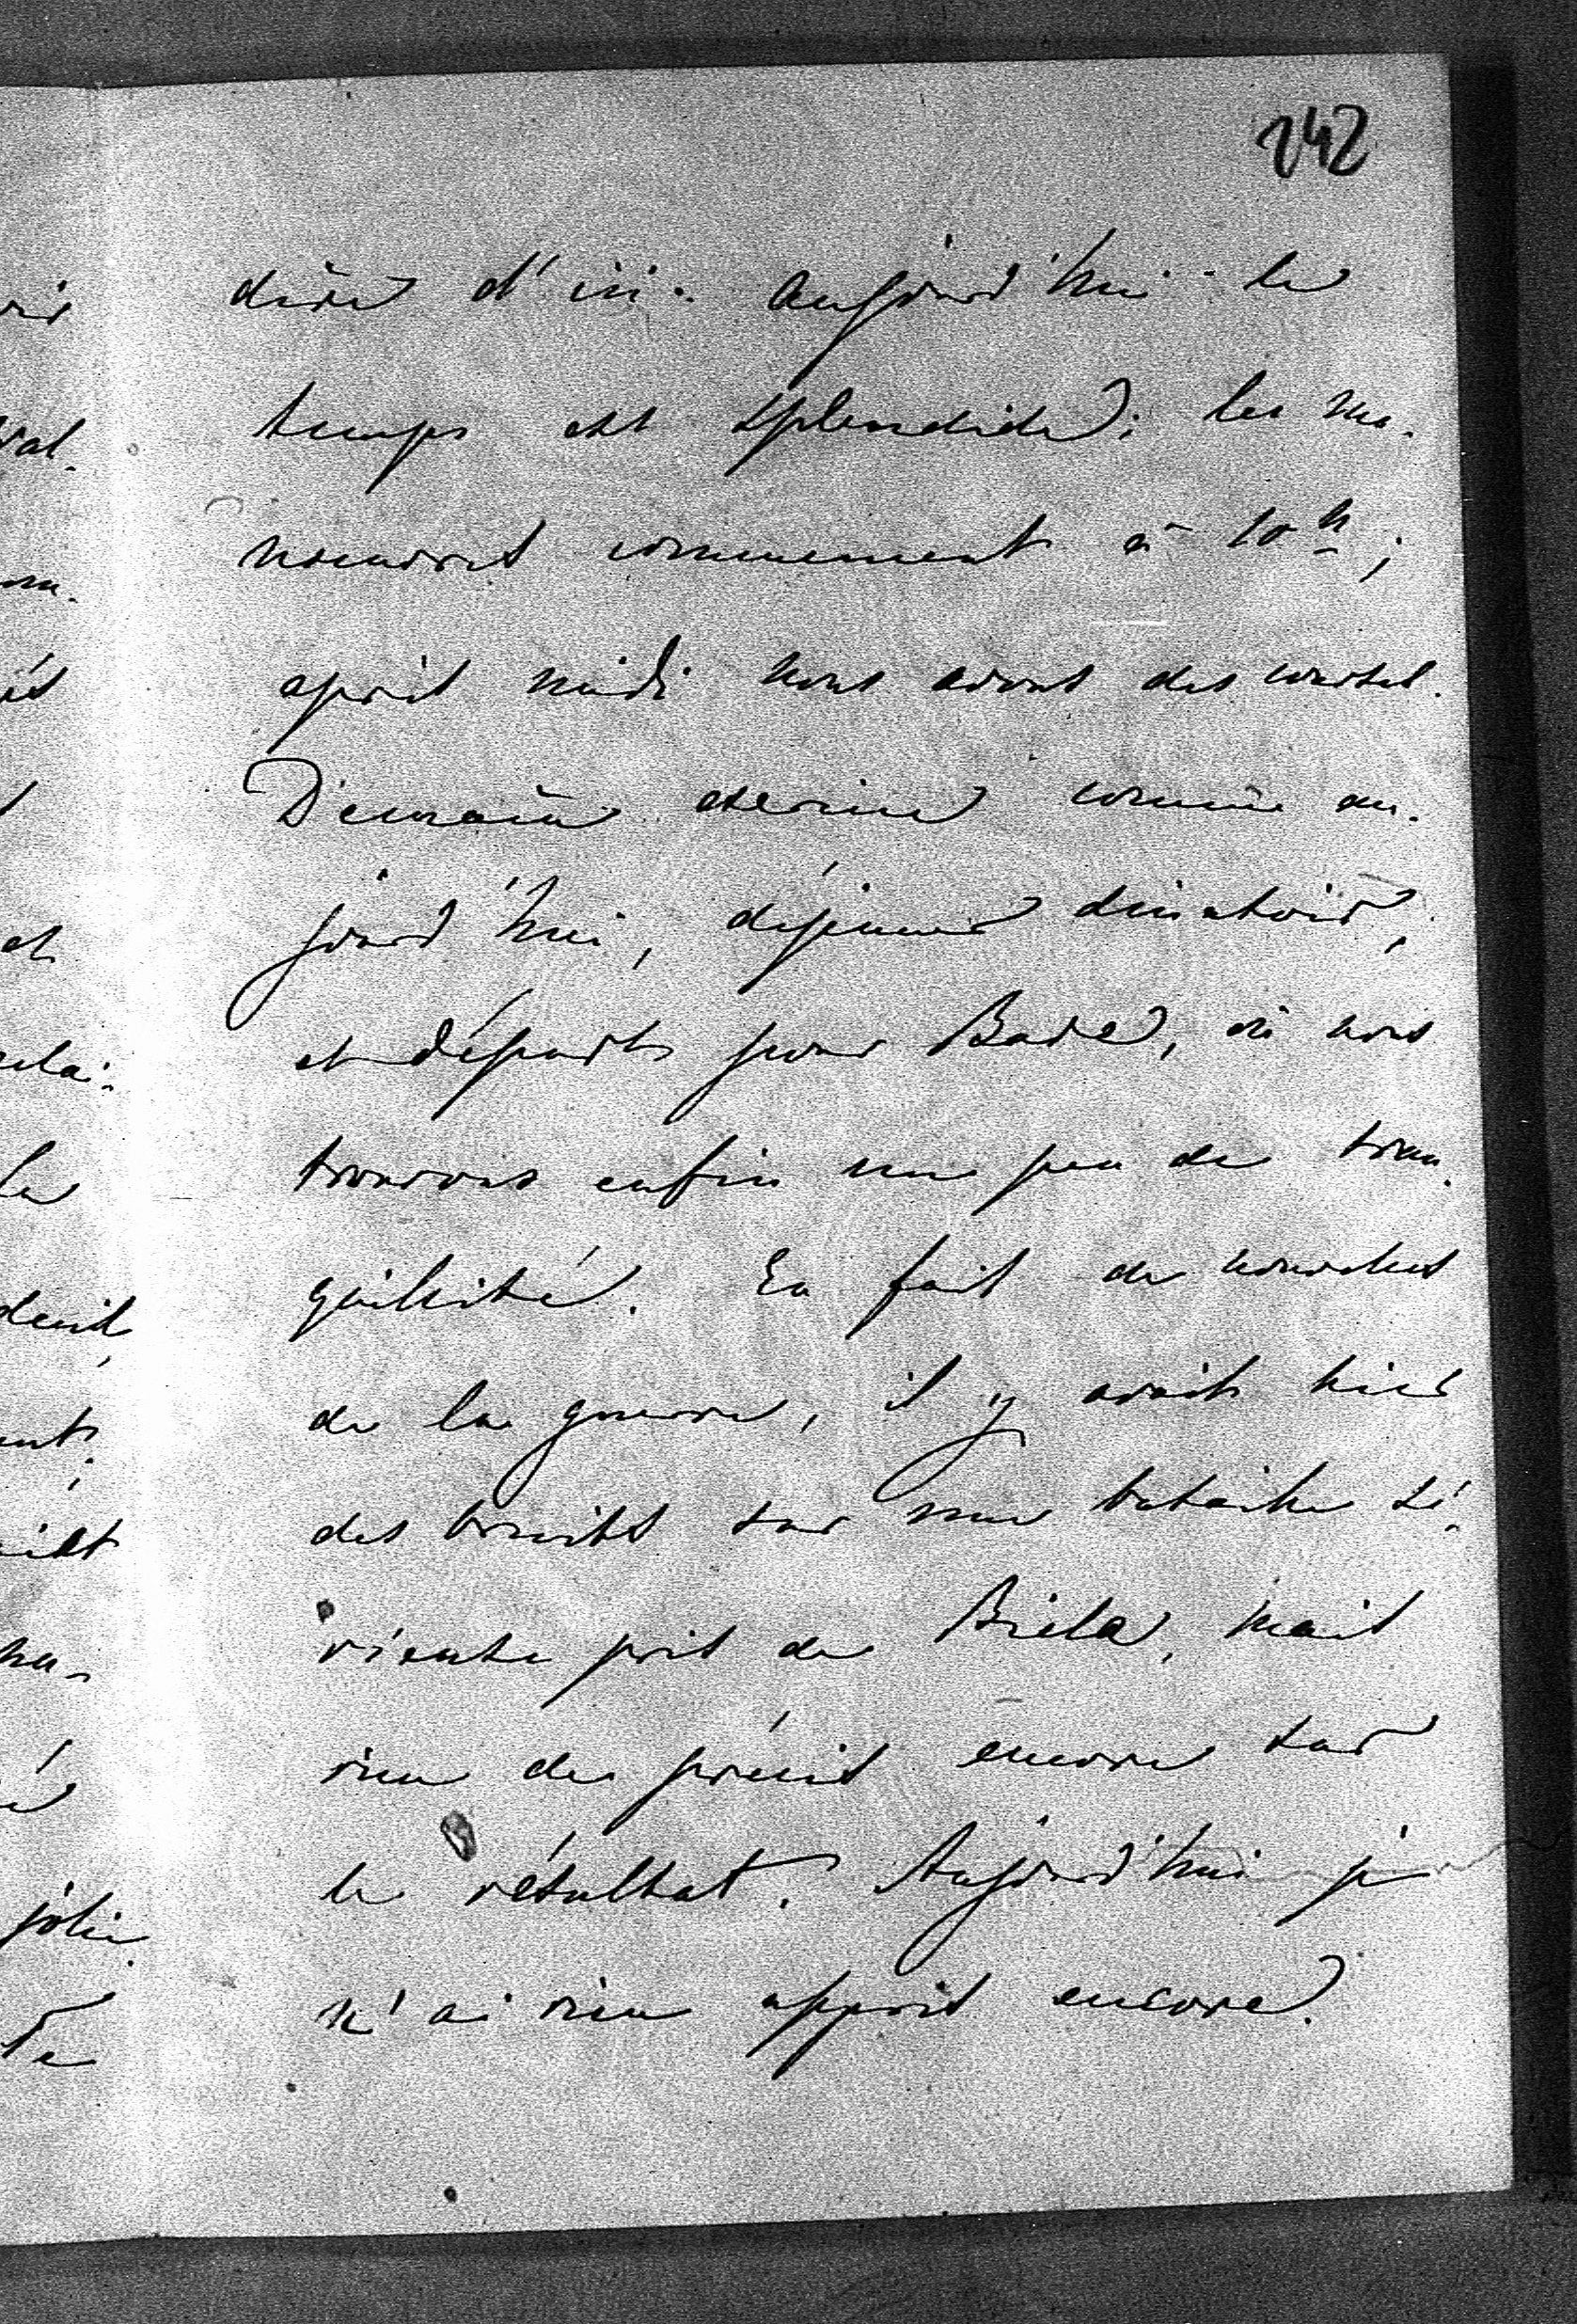 242
dire d'ici. Aujourd'hui le
temps est splendide; les ma-
noeuvres commencent à 10h;
après midi nous avons des courses.
Demain exercice comme au-
jourd'hui, déjeuner dinatoire,
et départ pour Bade, où nous
trouvons enfin un peu de tran-
quillité. En fait de nouvelles
de la guerre, il y avait hier
des bruits sur une bataille sé-
rieuse près de Biela, mais
rien de précis encore sur
le résultat. Aujourd'hui je
n'ai rien appris encore.